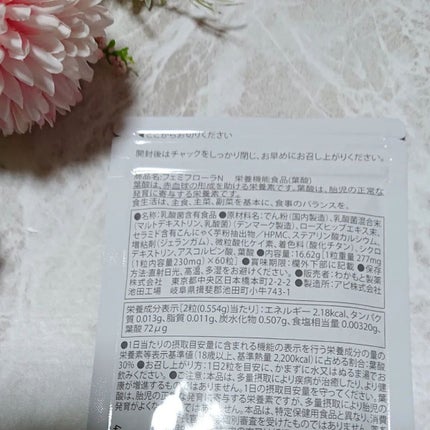 ◀ここからお切りください
開封後はチャックをしっかり閉じ、お早めにお召し上がりください。
商品名:フェミフローラN 栄養機能食品(葉酸)
葉酸は、赤血球の形成を助ける栄養素です。葉酸は、胎児の正常な
発育に寄与する栄養素です。
食生活は、主食、主菜、副菜を基本に、食事のバランスを。
●名称:乳酸菌含有食品 ●原材料名:でん粉(国内製造)、乳酸菌混合末
(マルトデキストリン、乳酸菌)(デンマーク製造)、ローズヒップエキス末、
セラミド含有こんにゃく芋粉抽出物/HPMC、ステアリン酸カルシウム、
増粘剤(ジェランガム)、微粒酸化ケイ素、着色料(酸化チタン)、シクロ
デキストリン、アスコルビン酸、葉酸 ●内容量:16.62g(1粒重量277mg
(1粒内容量230mg)×60粒) ●賞味期限:欄外下部に記載 ●保存
方法:直射日光、高温、多湿をお避けください。 ●販売者:わかもと製薬
株式会社 東京都中央区日本橋本町2-2-2 ●製造所:アピ株式会社
池田工場 岐阜県揖斐郡池田町小牛743-1
栄養成分表示[2粒(0.554g)当たり]:エネルギー 2.18kcal、タンパク
質 0.013g、脂質 0.011g、炭水化物 0.507g、食塩相当量 0.00320g、
葉酸 72μg
●1日当たりの摂取目安量に含まれる機能の表示を行う栄養成分の量の
栄養素等表示基準値(18歳以上、基準熱量2,200kcal)に占める割合:葉酸
30% ●お召し上がり方:1日2粒を目安に、かまずに水又はぬるま湯でお
飲みください。 ●ご注意:本品は、多量摂取により疾病が治癒したり、より健
康が増進するものではありません。1日の摂取目安量を守ってください。
葉酸は、胎児の正常な発育に寄与する栄養素ですが、多量摂取により胎児の
発育がよくなるものではありません。本品は、特定保健用食品と異なり、消費